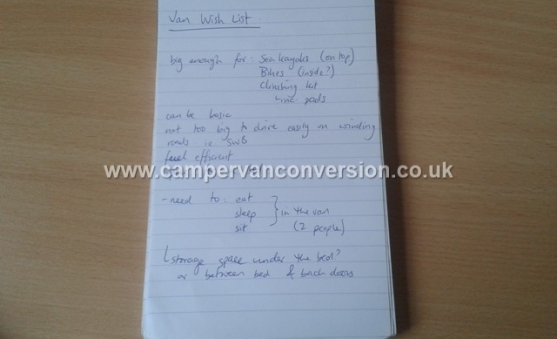 Van Wish List.
big enough for: Sea kayaks (on top)
Bikes (inside?)
Climbing kit
inc. pads
can be basic
not too big to drive easily on winding
roads ie SWB
fuel efficient
www.campervanconversion.co.uk
- need to: eat
sleep
sit
in the van
(2 people)
storage space under the bed?
or between bed & back doors